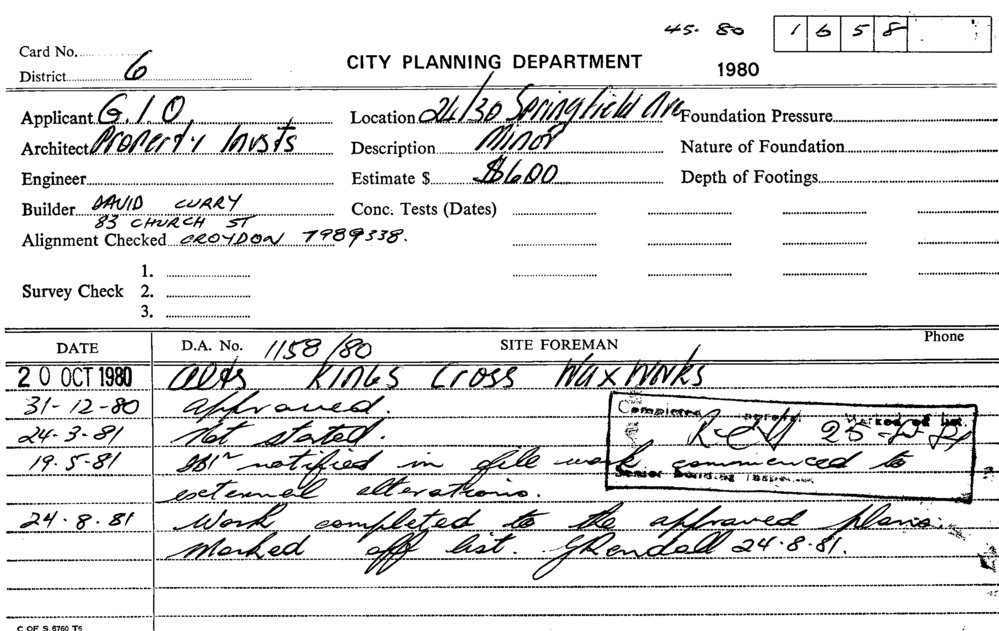 45. 80 1658
Card No.
District 6
CITY PLANNING DEPARTMENT
1980
Applicant G.I.O. Location 24/30 Springfield Ave Foundation Pressure
Architect Property Invsts Description Minor Nature of Foundation
Engineer Estimate $ $600 Depth of Footings
Builder DAVID CURRY Conc. Tests (Dates)
83 CHURCH ST
Alignment Checked CROYDON 7989338.
1.
Survey Check 2.
3.
DATE D.A. No. 1158/80 SITE FOREMAN Phone
20 OCT 1980 alts Kings Cross Waxworks
31-12-80 approved.
24-3-81 Not started.
19.5-81 notified in file work commenced to
external alterations.
24.8.81 Work completed to the approved plans.
Marked off list. GRendall 24-8-81.
Completed Marked off list.
Senior Building Inspector
C OF S 6760 T5